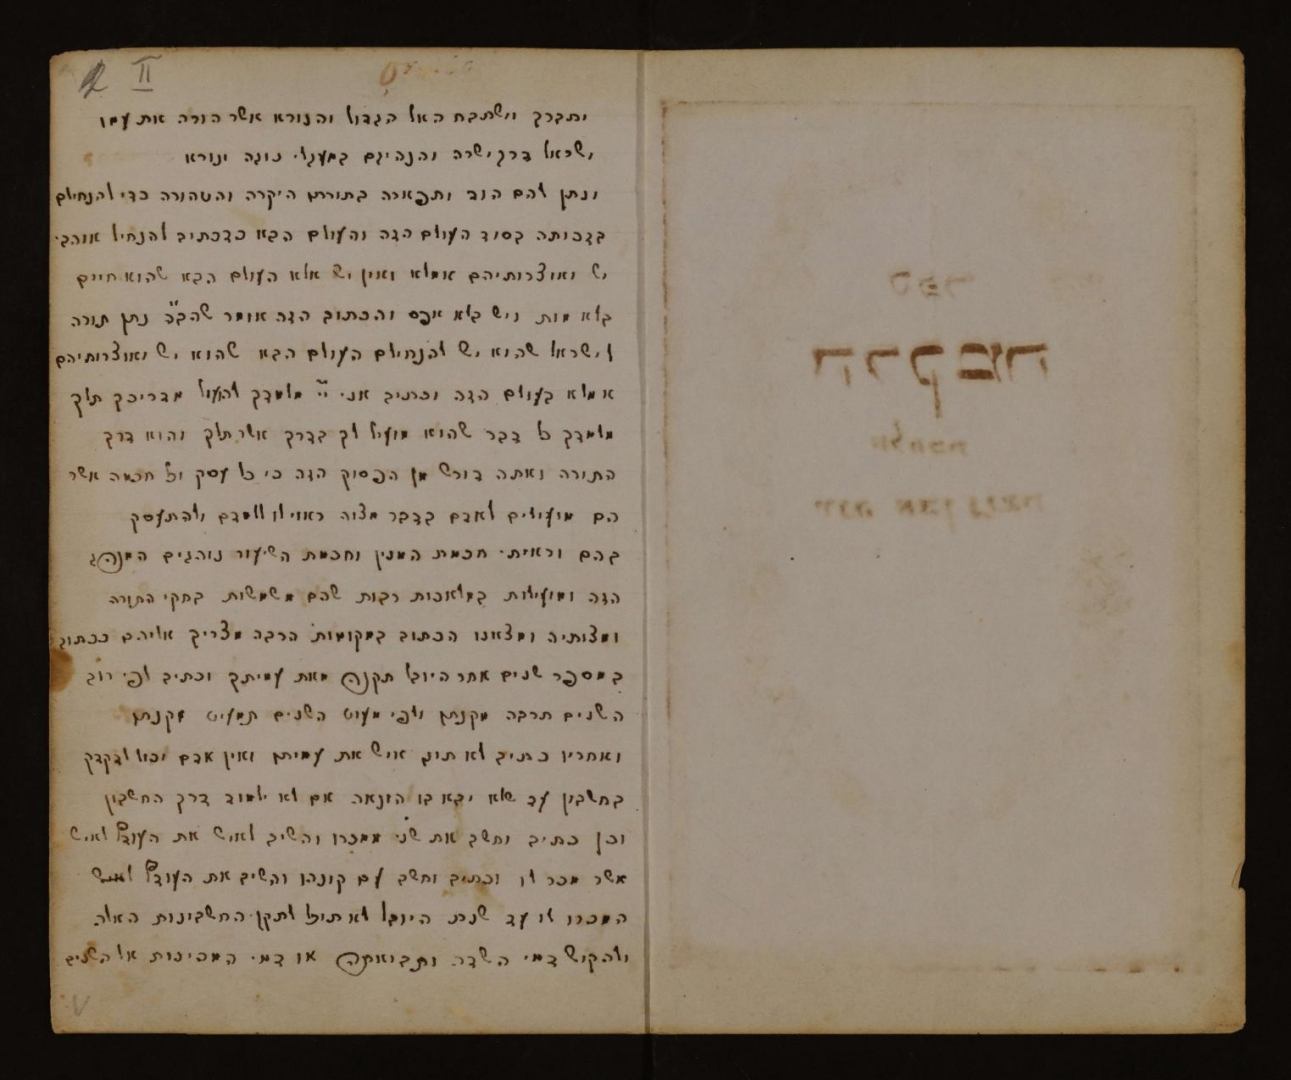 II
יתברך וישתבח האל הגדול והנורא אשר הורה את עמו
ישראל דרך ישרה והנהיגם במעגלי נוגה ונורא
ונתן להם הוד ותפארה בתורתו היקרה והטהורה כדי להנחילם
בזכותה בסוד העולם הזה והעולם הבא כדכתיב להנחיל אוהבי
יש ואוצרותיהם אמלא ואין יש אלא העולם הבא שהוא חיים
בלא מות ויש בלא אפס והכתוב הזה אומר שהב״ה נתן תורה
לישראל שהוא יש להנחילם העולם הבא שהוא יש ואוצרותיהם
אמלא בעולם הזה וכתיב אני יי מלמדך להועיל מדריכך תלך
מלמדך כל דבר שהוא מועיל לך בדרך אשר תלך והוא דרך
התורה ואתה דורש מן הפסוק הזה כי כל עסק וכל חכמה אשר
הם מועילים לאדם בדבר מצוה ראוי לו ללמדם ולהתעסק
בהם וראיתי חכמת המנין וחכמת השיעור נוהגים המנהג
הזה ומועילות במלאכות רבות שהם משמשות בחקי התורה
ומצותיה ומצאנו הכתוב במקומות הרבה מצריך אליהם ככתוב
במספר שנים אחר היובל תקנה מאת עמיתך וכתיב לפי רוב
השנים תרבה מקנתו ולפי מעוט השנים תמעיט מקנתו
ואחריו כתיב לא תונו איש את עמיתו ואין אדם יכול לדקדק
בחשבון עד שלא יבא בו הונאה אם לא ילמוד דרך החשבון
וכן כתיב וחשב את שני ממכרו והשיב לאיש את העודף לאיש
אשר מכר לו וכתיב וחשב עם קונהו והשיב את העודף לאיש
המכרו לו עד שנת היובל לא תוכל לתקן החשבינות האלה
ולהקיש דמי השדה ותבואתה או דמי המכינות אל השנים
ספר
הברקה
מלחמה